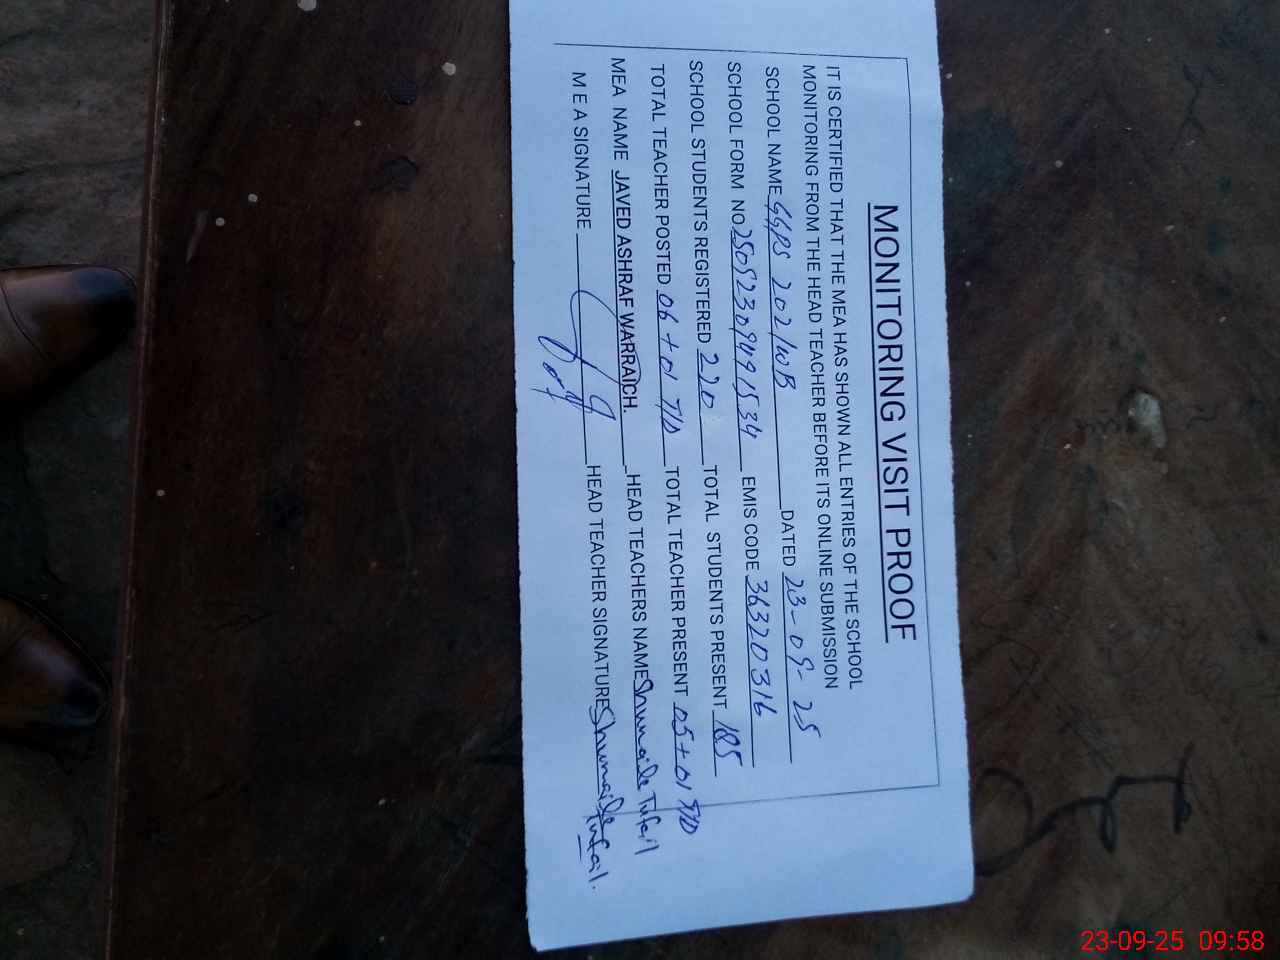 MONITORING VISIT PROOF
IT IS CERTIFIED THAT THE MEA HAS SHOWN ALL ENTRIES OF THE SCHOOL
MONITORING FROM THE HEAD TEACHER BEFORE ITS ONLINE SUBMISSION
SCHOOL NAME GGPS 202/WB DATED 23-09-25
SCHOOL FORM NO. 25092309491534 EMIS CODE 36320316
SCHOOL STUDENTS REGISTERED 220 TOTAL STUDENTS PRESENT 185
TOTAL TEACHER POSTED 06+01 T/D TOTAL TEACHER PRESENT 05+01 T/D
MEA NAME JAVED ASHRAF WARRAICH. HEAD TEACHERS NAME Shumaila Tufail
M E A SIGNATURE HEAD TEACHER SIGNATURE Shumaila Tufail.
23-09-25 09:58